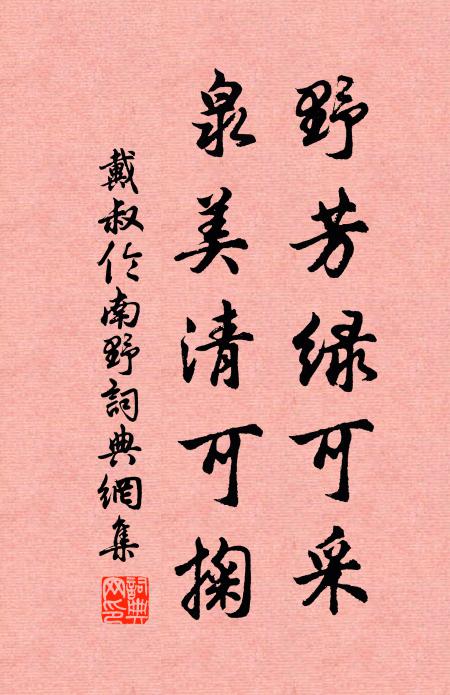 野芳绿可采
泉美清可掬
戴叔伦南野詞典網集
詞典网印